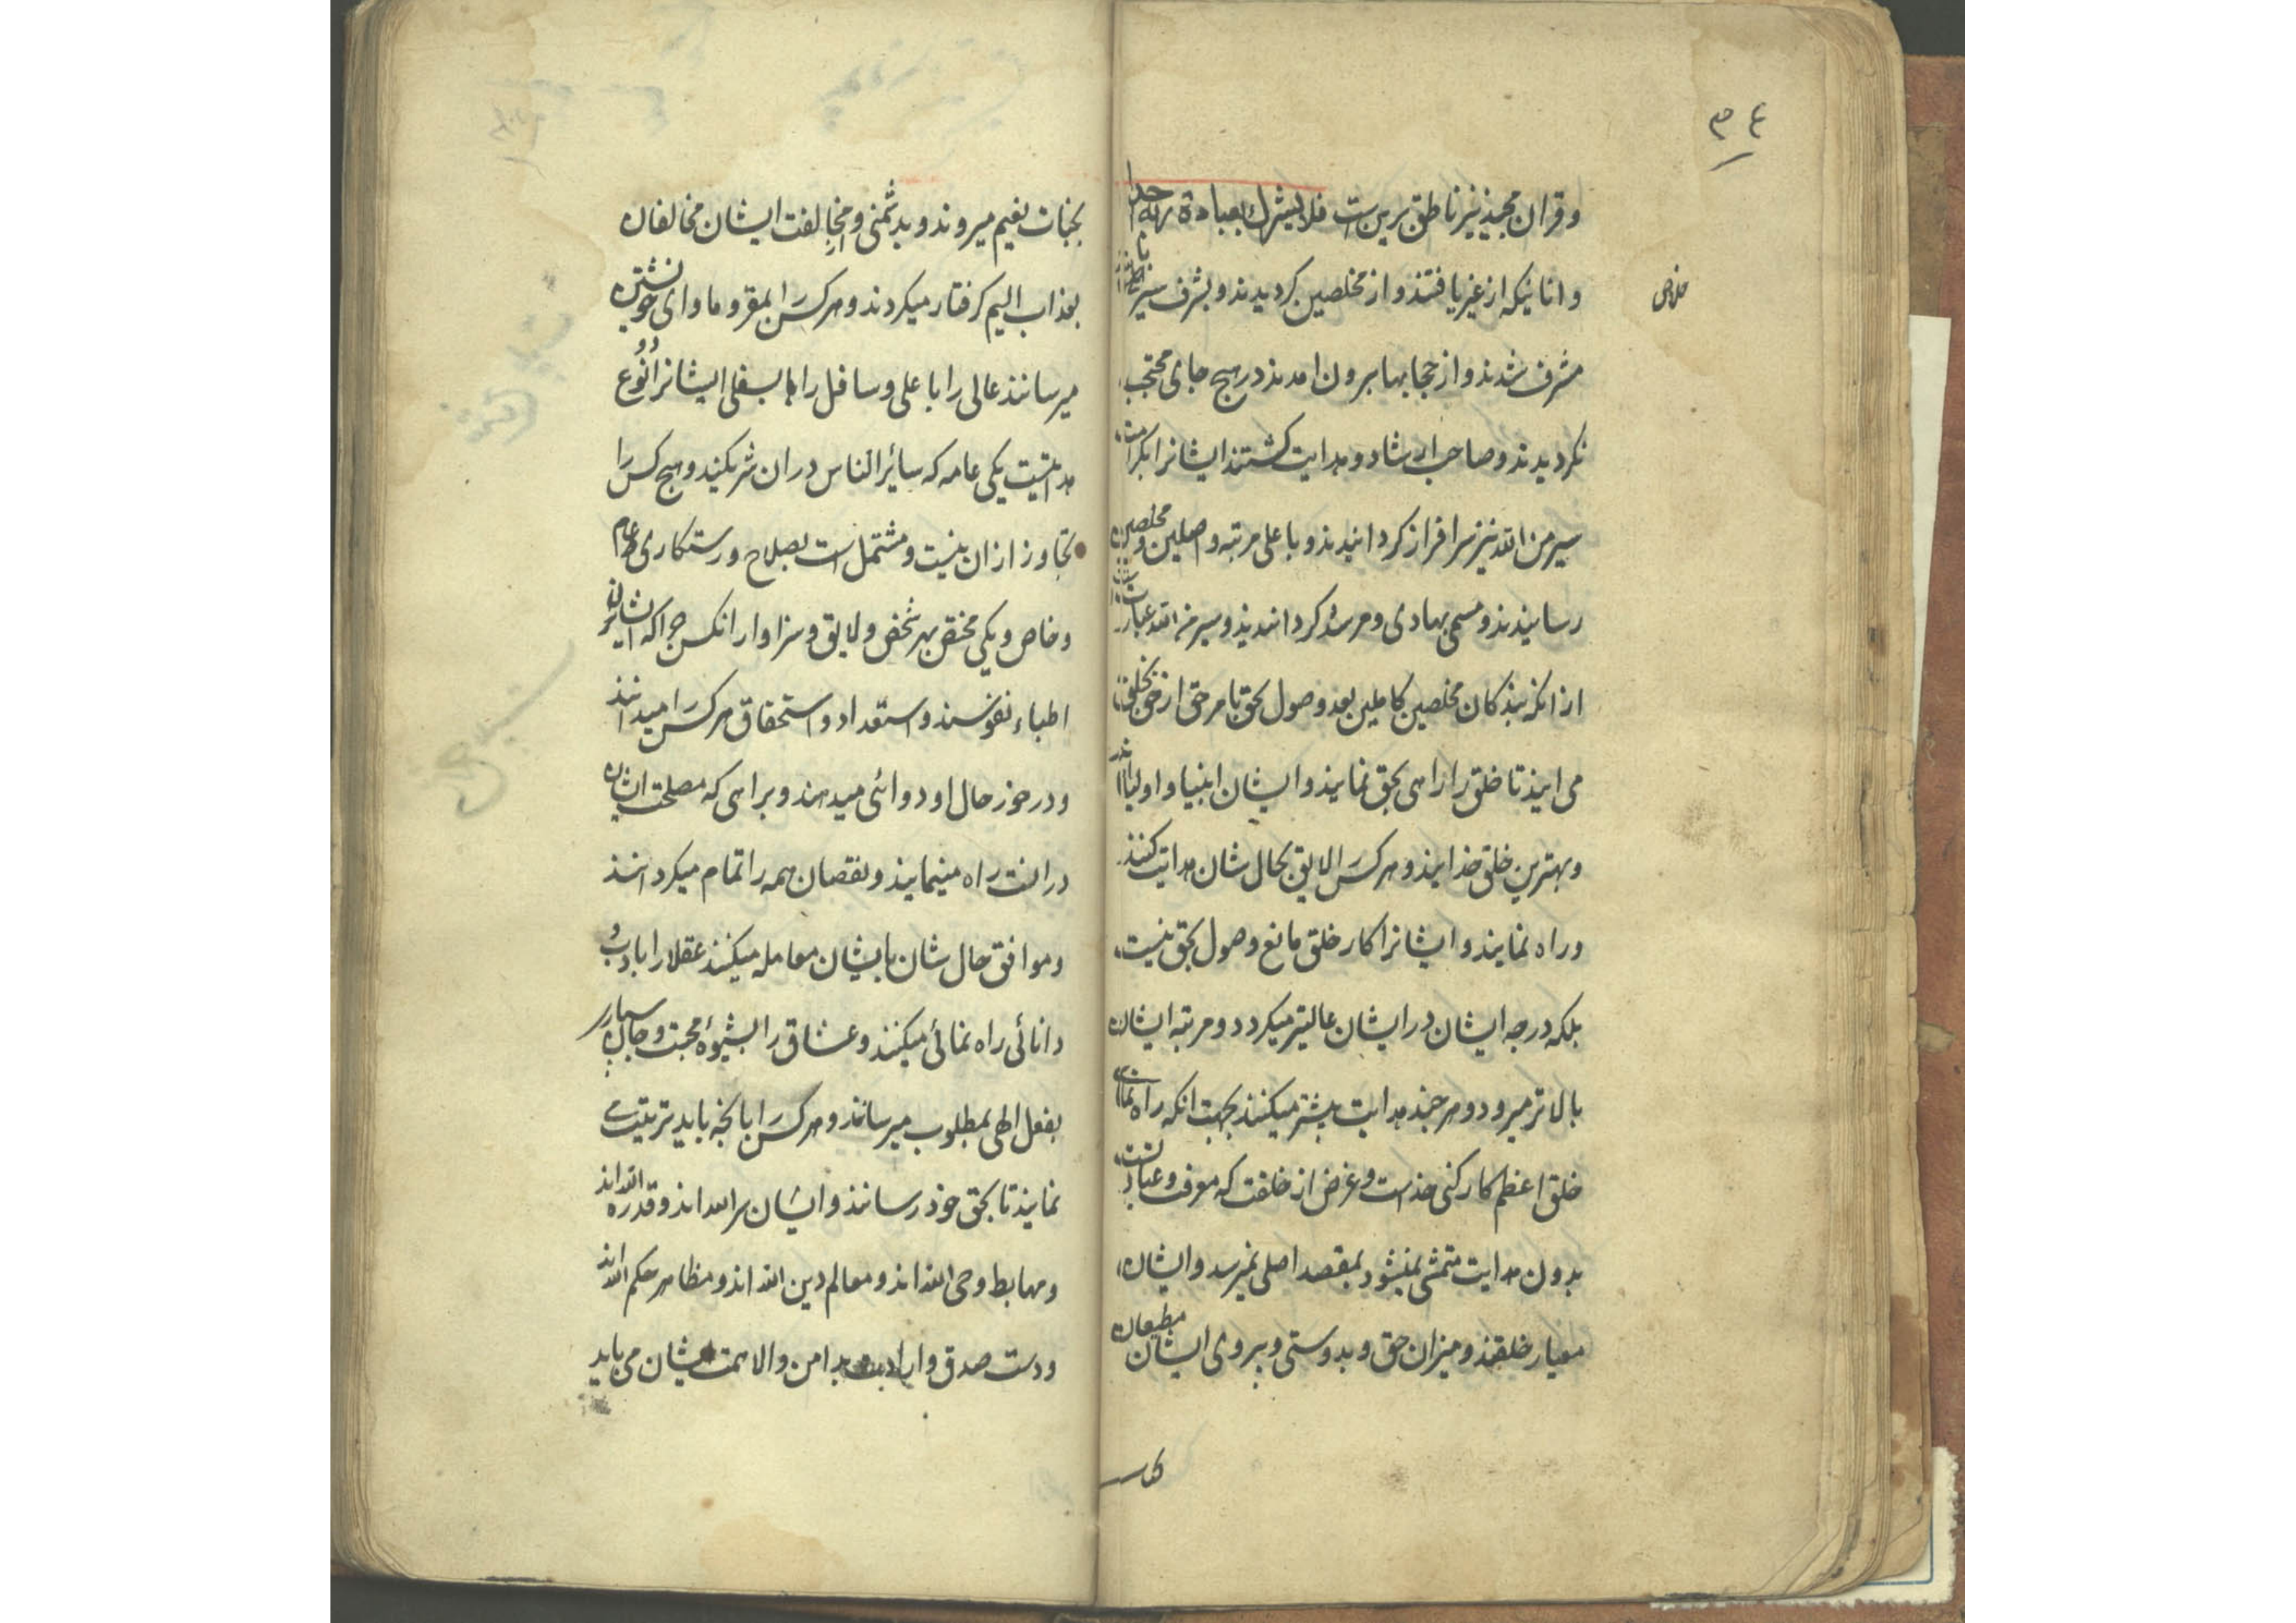 ۳۴
وقران مجید نیز ناطق برین ست فلا یشرك بعبادة ربه احدا
وانانیکه از غیر یافتند و از مخلصین کردیدند و بشرف سیر
خلاص
مشرف شدند و از حجابها بیرون امدند در هیچ جای محتجب
نکردیدند و صاحب ارشاد و هدایت کشتند ایشانرا بکرامت
سیر من الله نیز سرافراز کردانیدند و با علی مرتبه واصلین و مخلصین
رسانیدند و مسمی بهادی و مرشد کردانیدند و سیر من الله عبارت
از انکه بندکان مخلصین کاملین بعد وصول بحق بامر حق از حق بخلق
می ایند تا خلق را راهی بحق نمایند و ایشان انبیا و اولیا اند
وبهترین خلق خدایند و هر کس را لایق بحال شان هدایت کنند
وراه نمایند و ایشانرا کار خلق مانع وصول بحق نیست
بلکه درجه ایشان در ایشان عالیتر میکردد و مرتبه ایشان
بالاتر میرود و هر چند هدایت بیشتر میکنند بجهت انکه راه نمائی
خلق اعظم کارکنی خداست و غرض از خلقت که معرفت و عبادتست
بدون هدایت متمشی نمیشود بمقصد اصلی نمیرسد و ایشان
معیار خلقند و میزان حق و بدوستی و پیروی ایشان مطیعان
بجنات نعیم میروند و بدشمنی و مخالفت ایشان مخالفان
بعذاب الیم کرفتار میکردند و هر کس را بمقر و ماوای خویشتن
میرسانند عالی را با علی و سافل را باسفل ایشانرا دو نوع
هدایتیست یکی عامه که سائر الناس دران شریکند و هیچ کس را
تجاوز ازان نیست و مشتمل است بصلاح و رستکاری عام
وخاص و یکی مختص بهر شخص و لایق و سزاوار انکس چرا که ایشان
اطباء نفوسند و استعداد و استحقاق هر کس را میدانند
ودرخور حال او دوائی میدهند و براهی که مصلحت ایشان
درانست راه مینمایند و نقصان همه را تمام میکردانند
وموافق حال شان بایشان معامله میکنند عقلا را بادب و
دانائی راه نمائی میکنند و عشاق را بشیوهٔ محبت و جان سپاری
بفعل الهی بمطلوب میرسانند و هر کس را بانچه باید تربیت
نمایند تا بحق خود رسانند و ایشان سر الله اند و قدرة الله اند
ومهابط وحی الله اند و معالم دین الله اند و مظاهر حکم الله اند
ودست صدق و ارادت بدامن والا همت ایشان می باید